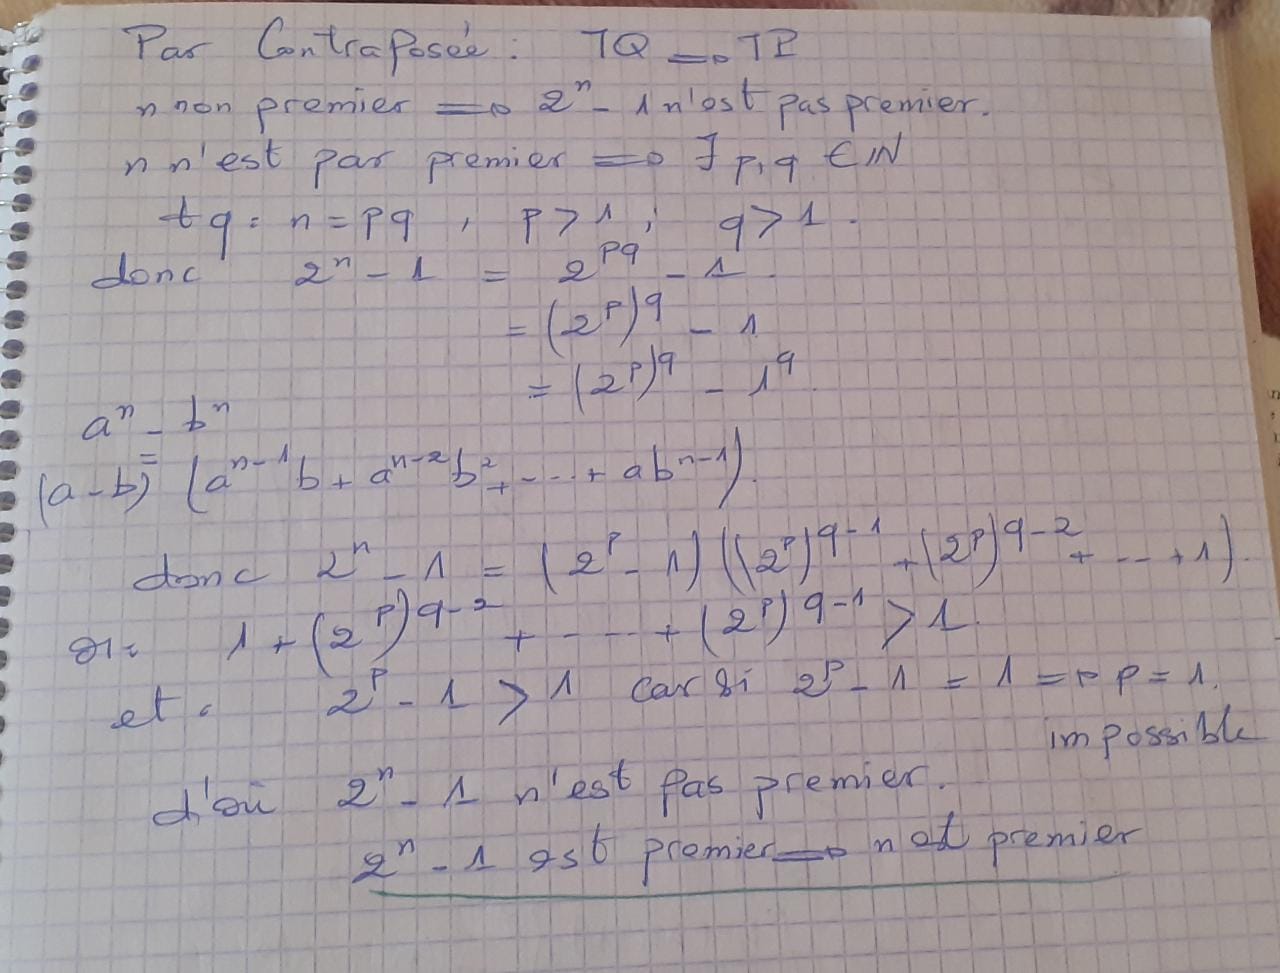 Par Contraposée : ┐Q ⟹ ┐P
n non premier ⟹ 2ⁿ - 1 n'est pas premier.
n n'est par premier ⟹ ∃ p, q ∈ ℕ
tq : n = pq , p > 1 ; q > 1 .
donc 2ⁿ - 1 = 2^{pq} - 1 .
= (2^p)^q - 1
= (2^p)^q - 1^q .
aⁿ - bⁿ
=
(a - b) (a^{n-1}b + a^{n-2}b² + - - - + ab^{n-1}) .
donc 2ⁿ - 1 = (2^p - 1) ((2^p)^{q-1} + (2^p)^{q-2} + - - - + 1) .
or : 1 + (2^p)^{q-2} + - - - - + (2^p)^{q-1} > 1 .
et : 2^p - 1 > 1 car si 2^p - 1 = 1 ⟹ p = 1 .
impossible
d'où 2ⁿ - 1 n'est pas premier .
2ⁿ - 1 est premier ⟹ n est premier